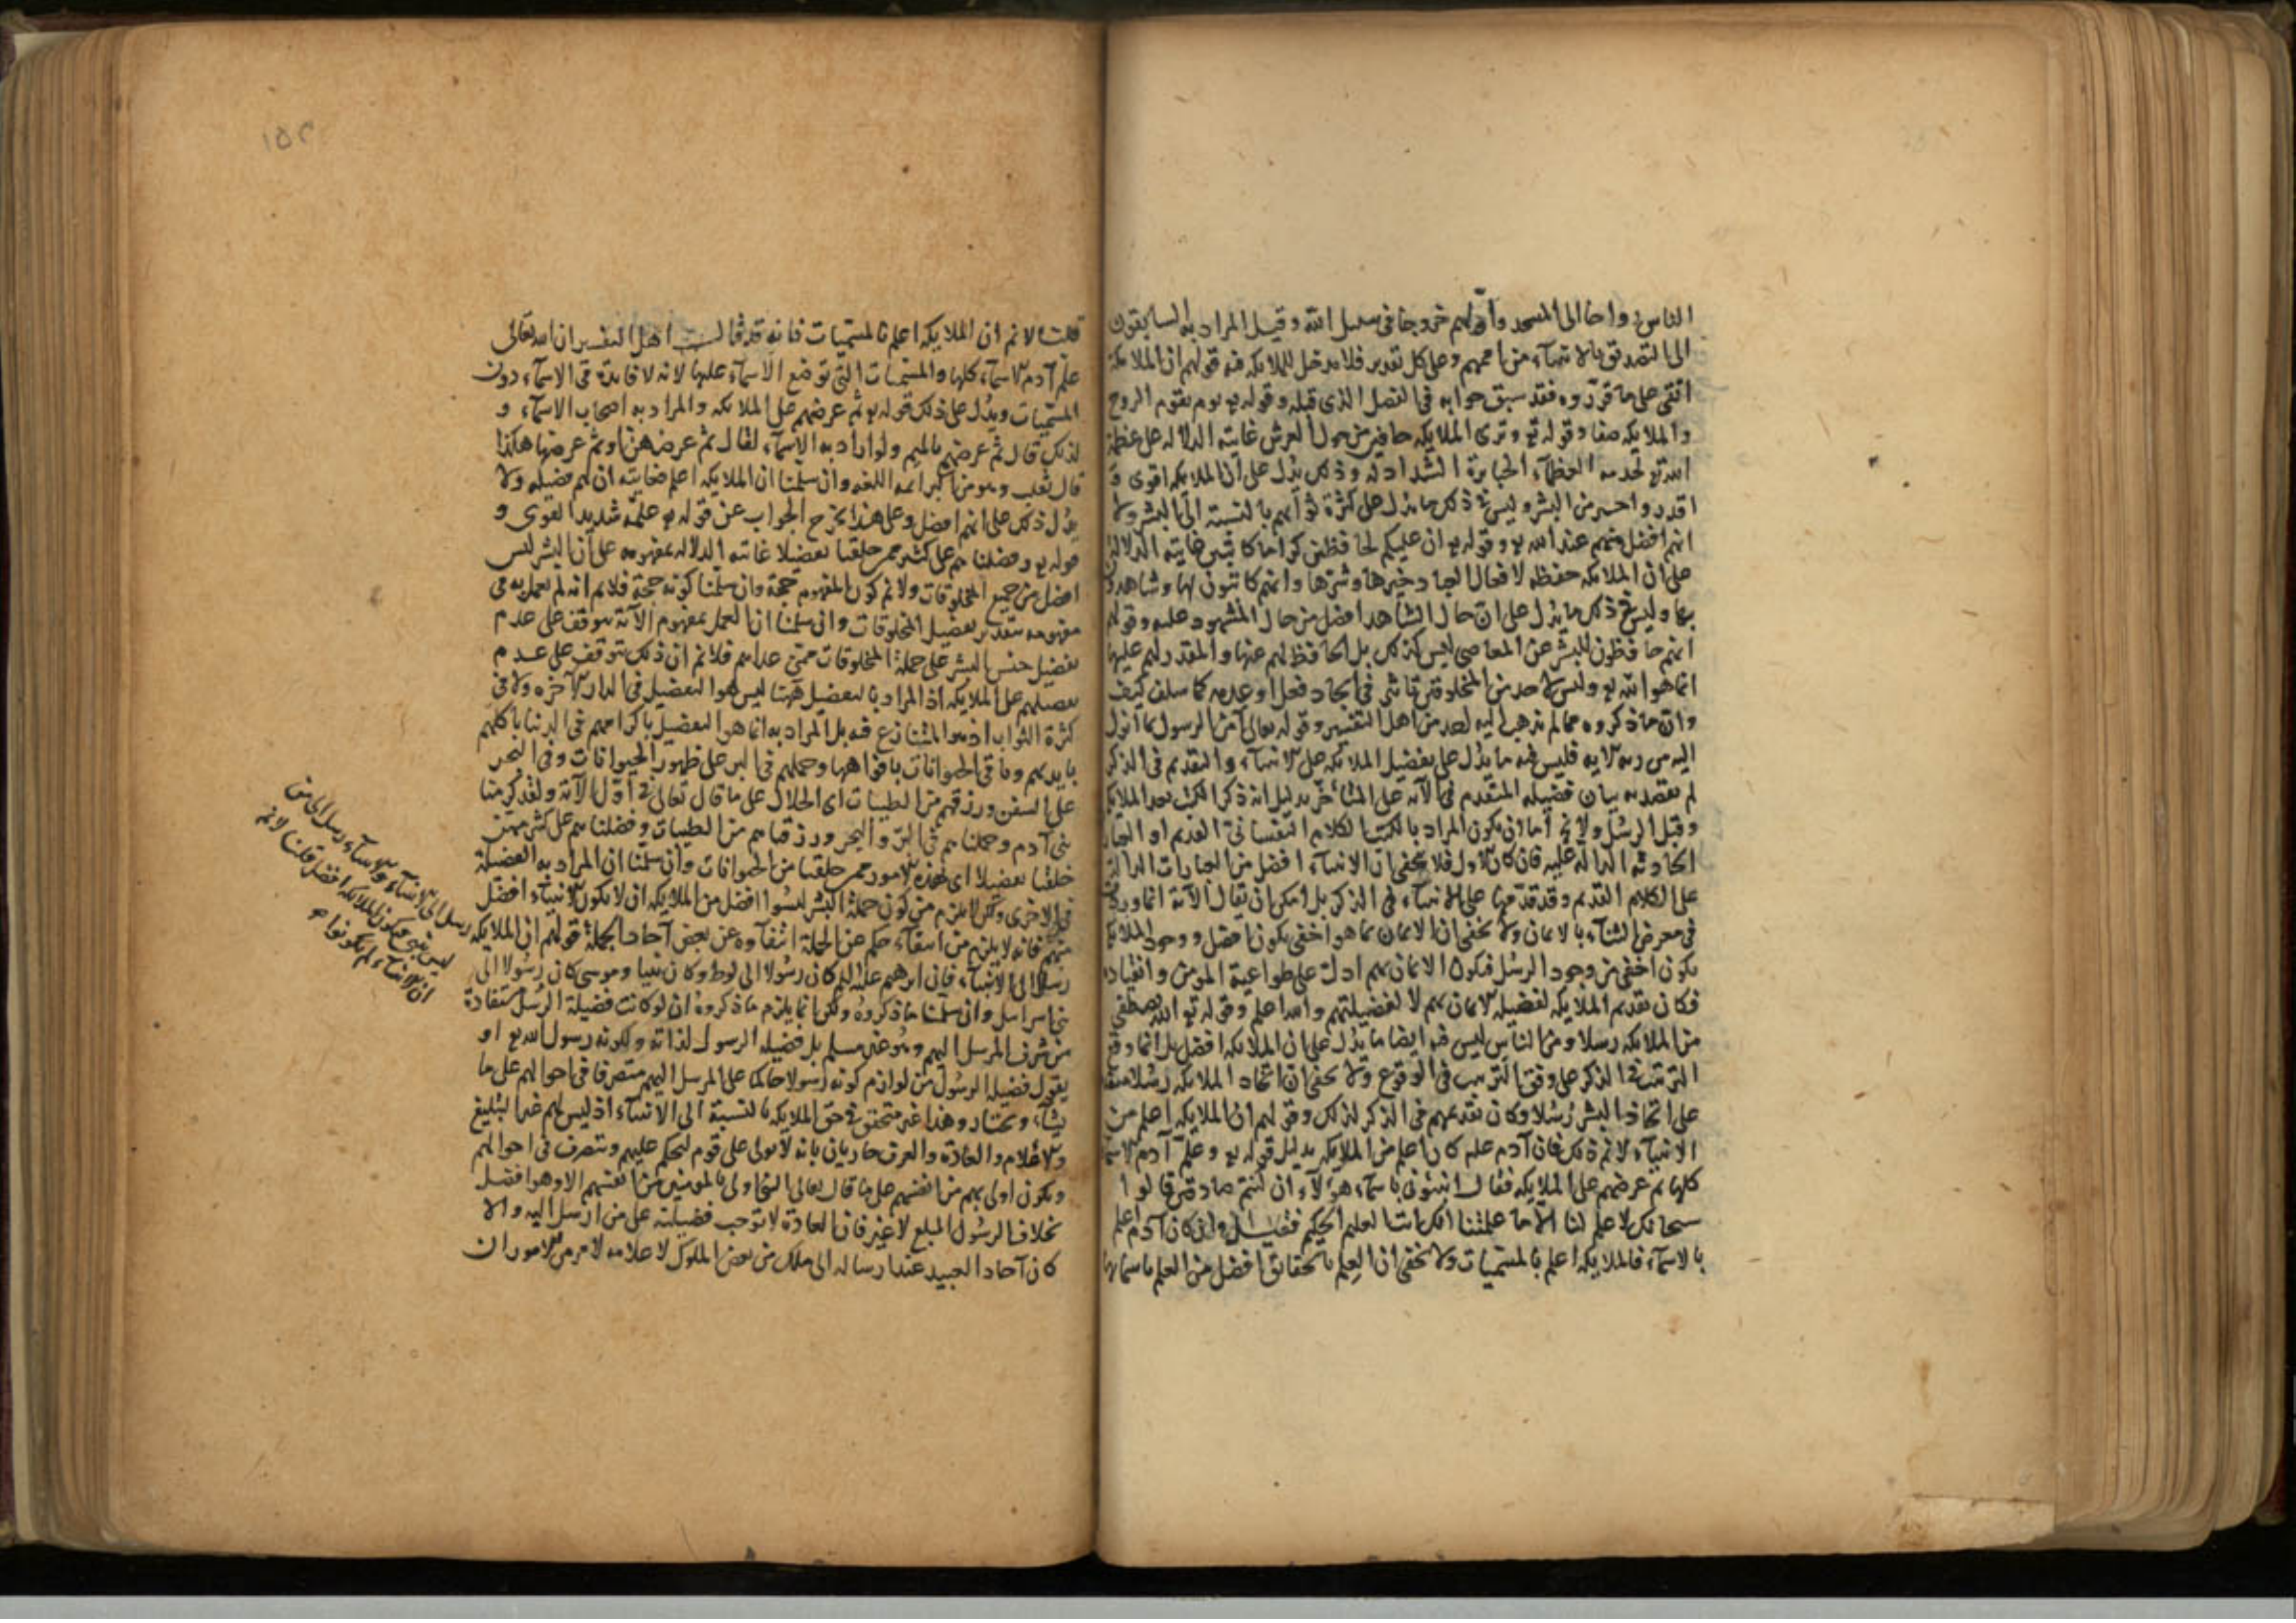 الناس رواحا الى المسجد واولهم خروجا فى سبيل الله وقيل المراد به السابقون
الى التصديق بالانبياء من اممهم وعلى كل تقدير فلا مدخل للملايكه فيه قولهم ان الملايكة
اتقى على ما قرروه فقد سبق جوابه فى الفصل الذى قبله وقوله تع يوم يقوم الروح
والملايكه صفا وقوله تع وترى الملايكه حافين من حول العرش غايته الدلاله على عظمة
الله تع لخدمه العظمآء الجبابرة الشداد له وذلك يدل على ان الملايكه اقوى و
اقدر واجسر من البشر وليس فى ذلك ما يدل على كثرة ثوابهم بالنسبة الى البشر ولا
انهم افضل منهم عند الله تع وقوله تع ان عليكم لحافظين كراما كاتبين غايته الدلالة
على ان الملايكه حفظه لافعال العباد خيرها وشرها وانهم كاتبون لها وشاهدون
بها وليس فى ذلك ما يدل على ان حال الشاهد افضل من حال المشهود عليه وقولهم
انهم حافظون للبشر عن المعاصى ليس كذلك بل الحافظ لهم عنها والمقدر لهم عليها
انما هو الله تع وليس لاحد من المخلوقين تاثير فى ايجاد فعل او عدمه كما سلف كيف
وان ما ذكروه مما لم يذهب اليه احد من اهل التفسير وقوله تعالى آمن الرسول بما انزل
اليه من ربه الايه فليس فيه ما يدل على تفضيل الملايكه على الانبيآء والتقديم فى الذكر
لم يقصد به بيان فضيله المتقدم فى الآية على المتأخر بدليل انه ذكر الكتب بعد الملايكة
وقبل الرسل ولا يخ اما ان يكون المراد بالكتب الكلام النفسانى القديم او العبارات
الحادثه الدالة عليه فان كان الاول فلا يخفى ان الانبيآء افضل من العبارات الدالة
على الكلام القديم وقد قدمها على الانبيآء فى الذكر بل امكن ان يقال الآية انما وردت
فى معرض الثناء بالايمان ولا يخفى ان الايمان بما هو اخفى يكون افضل ووجود الملايكة
يكون اخفى من وجود الرسل فيكون الايمان بهم ادل على طواعية المومن وانقياده
فكان تقديم الملايكه لفضيله الايمان بهم لا لفضيلتهم والله اعلم وقوله تع الله يصطفى
من الملايكه رسلا ومن الناس ليس فيه ايضا ما يدل على ان الملايكه افضل بل انما وقع
الترتيب فى الذكر على وفق الترتيب فى الوقوع ولا يخفى ان اتخاذ الملايكه رسلا متقدم
على اتخاذ البشر رسلا وكان تقديمهم فى الذكر لذلك وقولهم ان الملايكه اعلم من
الانبيآء لا نم ذلك فان آدم علم كان اعلم من الملايكه بدليل قوله تع وعلم آدم الاسمآء
كلها ثم عرضهم على الملايكه فقال انبئونى باسمآء هولآء ان كنتم صادقين قالوا
سبحانك لا علم لنا الا ما علمتنا انك انت العليم الحكيم فقيل وان كان آدم اعلم
بالاسمآء فالملايكه اعلم بالمسميات ولا يخفى ان العلم بالحقائق افضل من العلم باسمائها
قلت لا نم ان الملايكه اعلم بالمسميات فانه قد قالت اهل التفسير ان الله تعالى
علم آدم الاسمآء كلها والمسميات التى توضع الاسمآء عليها لانه لا فايدة فى الاسمآء دون
المسميات ويدل على ذلك قوله تع ثم عرضهم على الملايكه والمراد به اصحاب الاسمآء و
لذلك قال ثم عرضهم بالميم ولو اراد به الاسمآء لقال ثم عرضهن او ثم عرضها هكذا
قال ثعلب وهو من اكبر ائمه اللغه وان سلمنا ان الملايكه اعلم فغايته ان لهم فضيله ولا
يدل ذلك على انهم افضل وعلى هذا يخرج الجواب عن قوله تع علمه شديد القوى و
قوله تع وفضلناهم على كثير ممن خلقنا تفضيلا غايته الدلاله بمفهومه على ان البشر ليس
افضل من جميع المخلوقات ولا نم كون المفهوم حجة وان سلمنا كونه حجة فلا نم انه لم يعمل به فى
مفهومه بتقدير تفضيل المخلوقات وان سلمنا ان العمل بمفهوم الآية يتوقف على عدم
تفضيل جنس البشر على جملة المخلوقات ممن عداهم فلا نم ان ذلك يتوقف على عدم
تفضيلهم على الملايكه اذ المراد بالتفضيل ههنا ليس هو التفضيل فى الدار الآخره ولا فى
كثرة الثواب اذ هو المتنازع فيه بل المراد به انما هو التفضيل باكرامهم فى الدنيا باكلهم
بايديهم وباقى الحيوانات بافواهها وحملهم فى البر على ظهور الحيوانات وفى البحر
على السفن ورزقهم من الطيبات اى الحلال على ما قال تعالى فى اول الآية ولقد كرمنا
بنى آدم وحملناهم فى البر والبحر ورزقناهم من الطيبات وفضلناهم على كثير ممن
خلقنا تفضيلا اى بهذه الامور ممن خلقنا من الحيوانات وان سلمنا ان المراد به الفضيلة
فى الاخرى ولكن لا يلزم من كون جملة البشر ليسوا افضل من الملايكه ان لا يكون الانبيآء افضل
منهم فانه لا يلزم من انتفآء حكم عن الجملة انتفآوه عن بعض آحاد الجملة قولهم ان الملايكه
رسل الى الانبيآء والانبيآء رسل الى من
ليس بنبى فيكون الملايكه افضل قلنا لا نم
ان الانبيآء لم يكونوا
رسلا الى الانبيآء فان ابرهيم عليه السلم كان رسولا الى لوط وكان نبيا وموسى كان رسولا الى
بنى اسراىل وان سلمنا ما ذكروه ولكن انما يلزم ما ذكروه ان لو كانت فضيلة الرسل مستفادة
من شرف المرسل اليهم وهو غير مسلم بل فضيله الرسول لذاته ولكونه رسول الله تع او
يقول فضيله الرسول من لوازم كونه رسولا حاكما على المرسل اليهم متصرفا فى احوالهم على ما
يشآء ويختار وهذا غير متحقق فى حق الملايكه بالنسبة الى الانبيآء اذ ليس لهم غير التبليغ
والاعلام والعادة والعرف جاريان بانه لا يولى على قوم ليحكم عليهم ويتصرف فى احوالهم
ويكون اولى بهم من انفسهم على ما قال تعالى النبى اولى بالمومنين من انفسهم الا وهو افضل
بخلاف الرسول المبلغ لا غير فان العادة لا توجب فضيلته على من ارسل اليه والا
كان آحاد العبيد عند ارساله الى ملك من بعض الملوك لاعلامه لامر من الامور ان